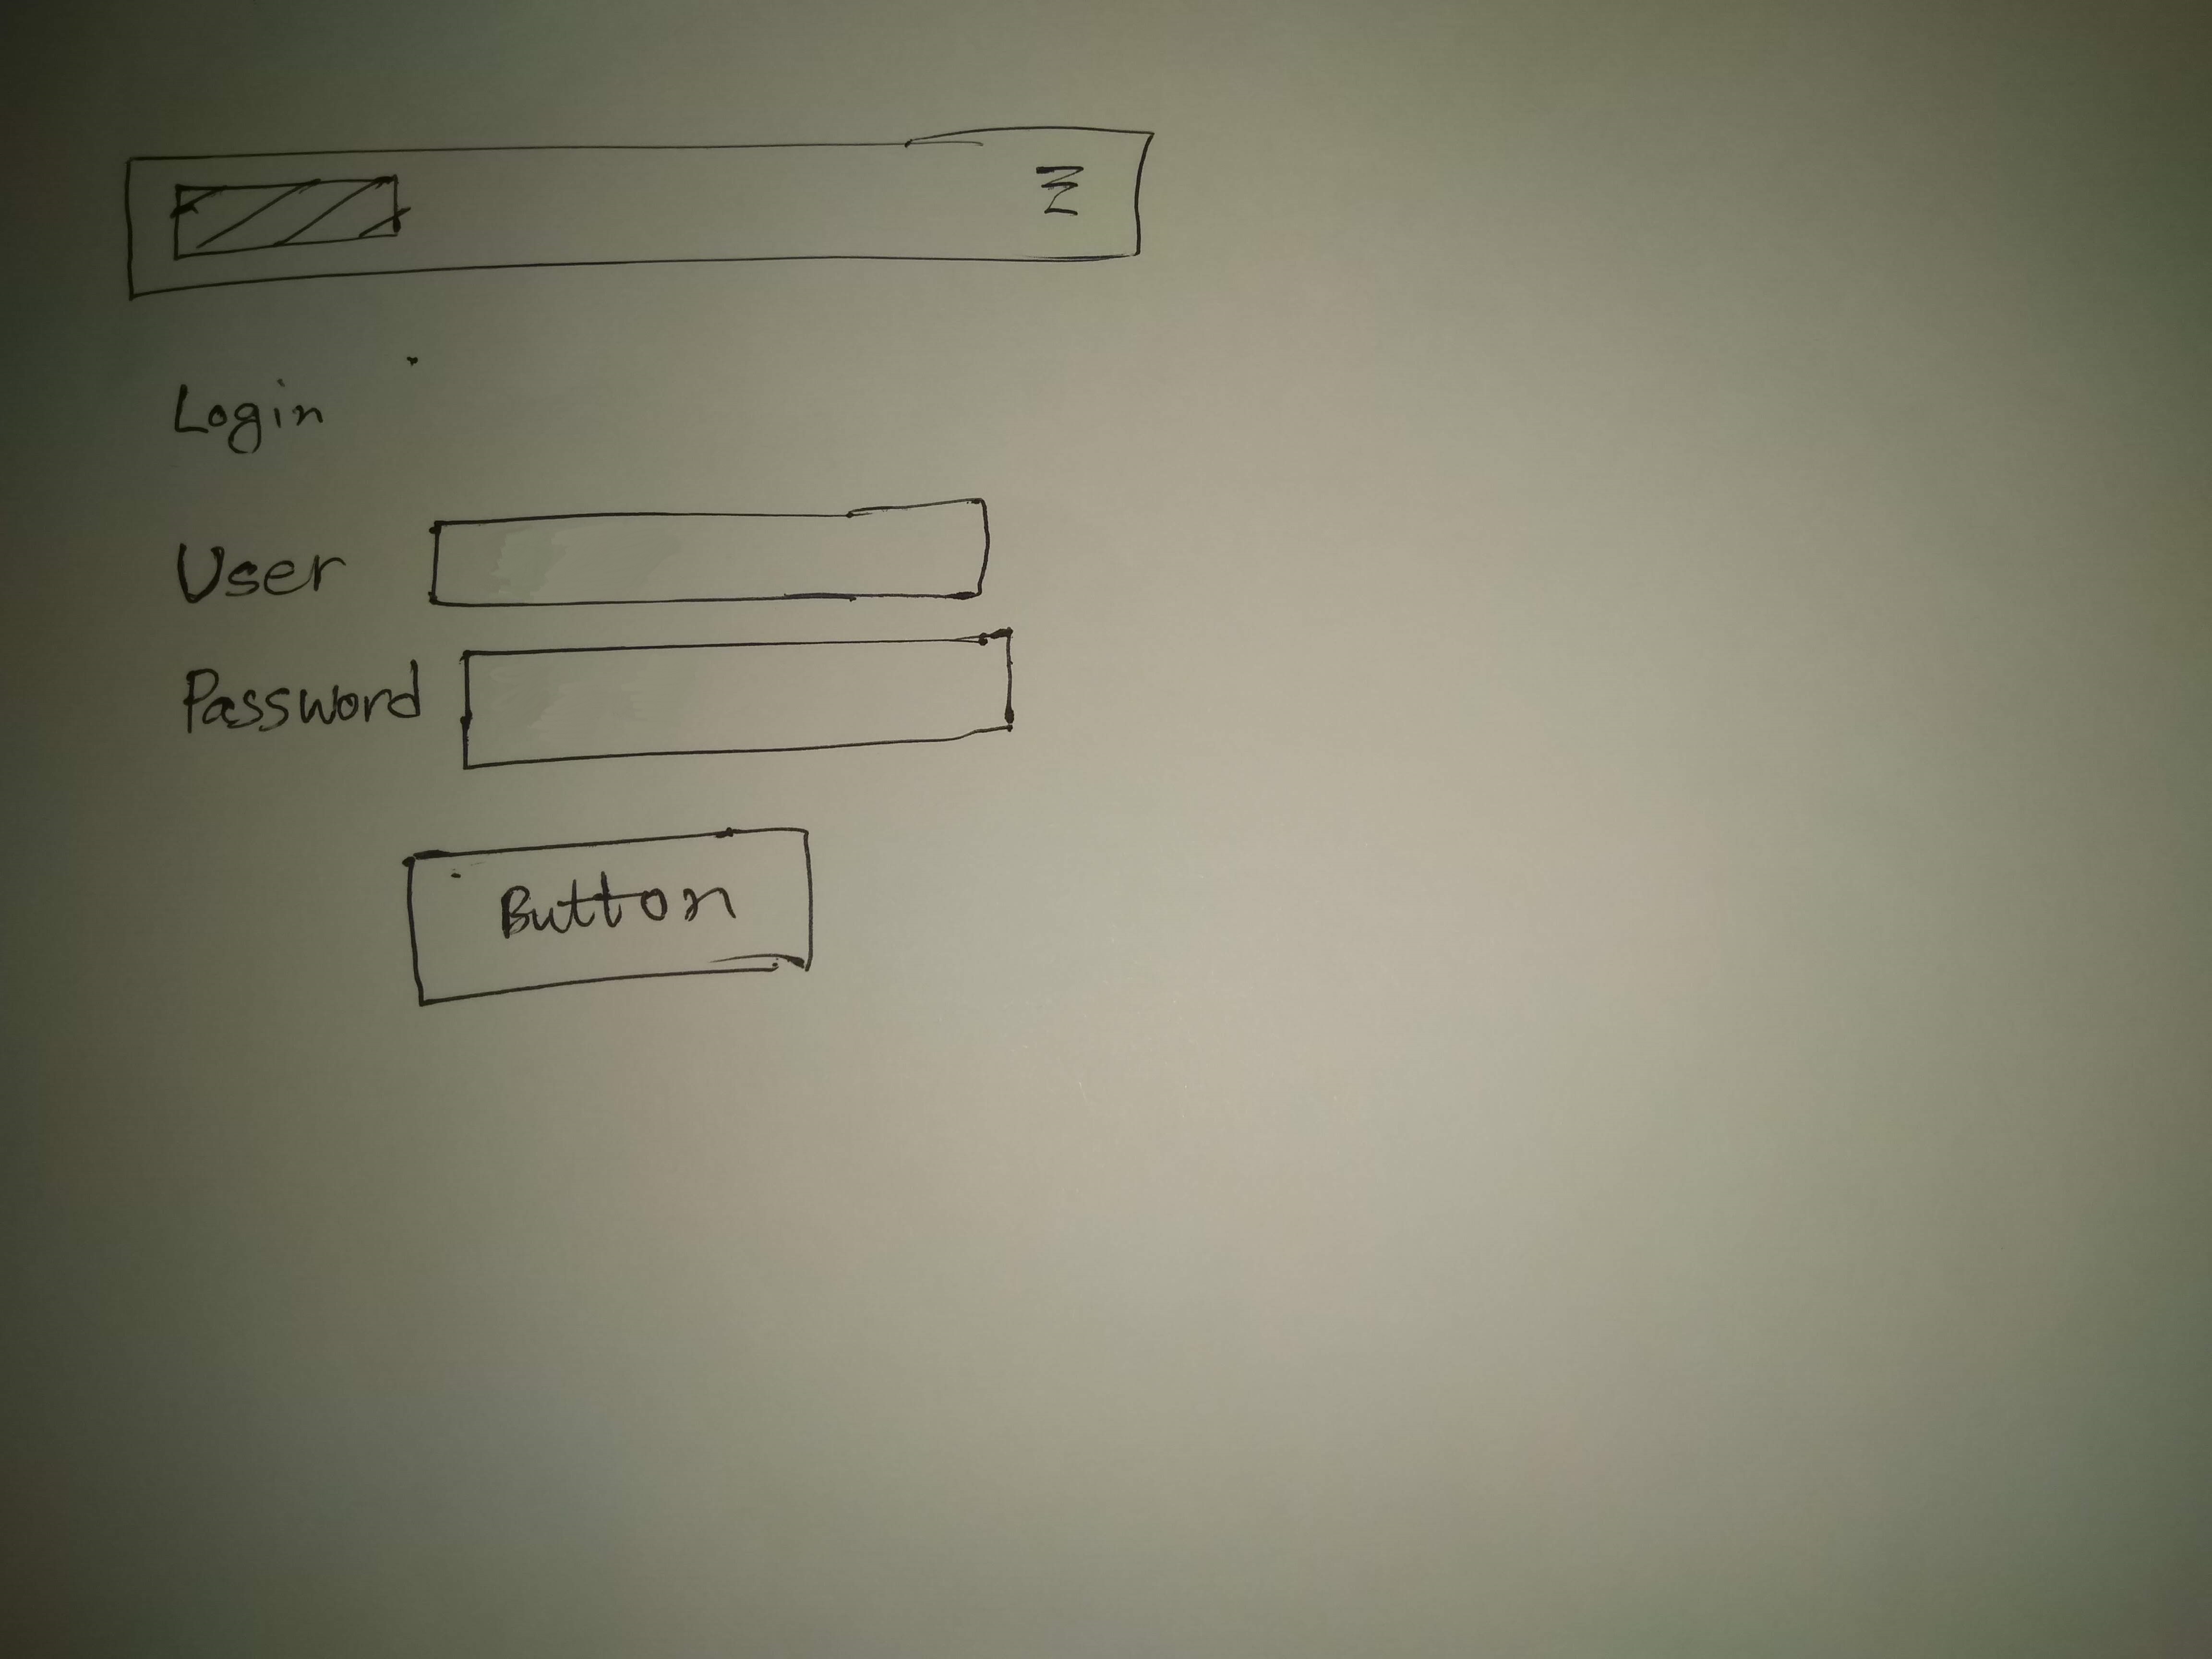 Login
User
Password
Button